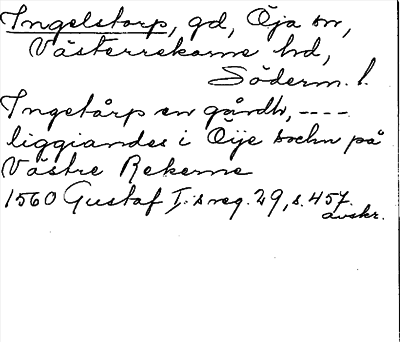 Ingelstorp, gd, Öja sn,
Västerrekarne hd,
Söderm. l.
Ingetårp en gårdh, ----
liggiandes i Öije sochn på
Västre Rekerne
1560 Gustaf I:s reg. 29, s. 457.
avskr.